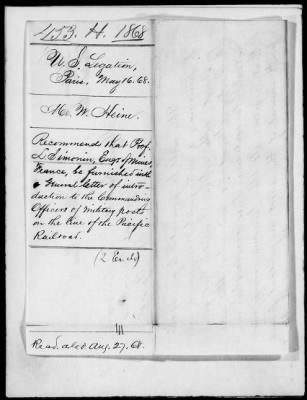 453. H. 1868
U. S. Legation,
Paris, May 16. 68.
M. W. Heine.
Recommends that Prof.
L. Simonin, Engr of Mines,
France, be furnished with
a letter of intro-
duction to the Commanding
Officers of Military posts
on the line of the Pacific
Railroad.
(2 Encls)
Aug. 27. 68.